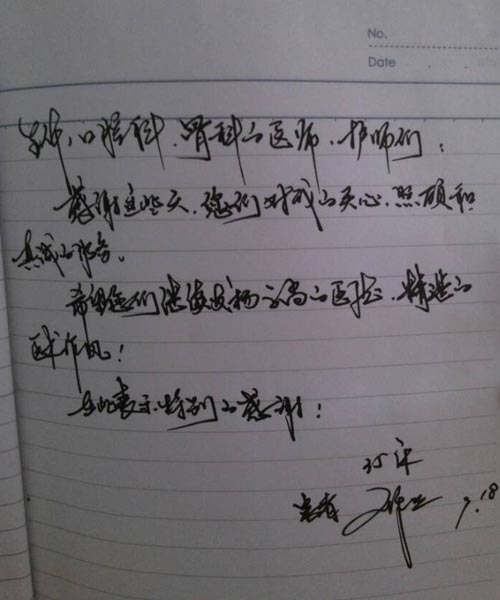 No.
Date
口腔科、骨科的医师、护师们：
感谢这些天、您们对我的关心、照顾和
真诚的服务。
希望您们继续发扬高尚的医德、精湛的
医术作风！
在此表示特别的感谢！
患者 7.18